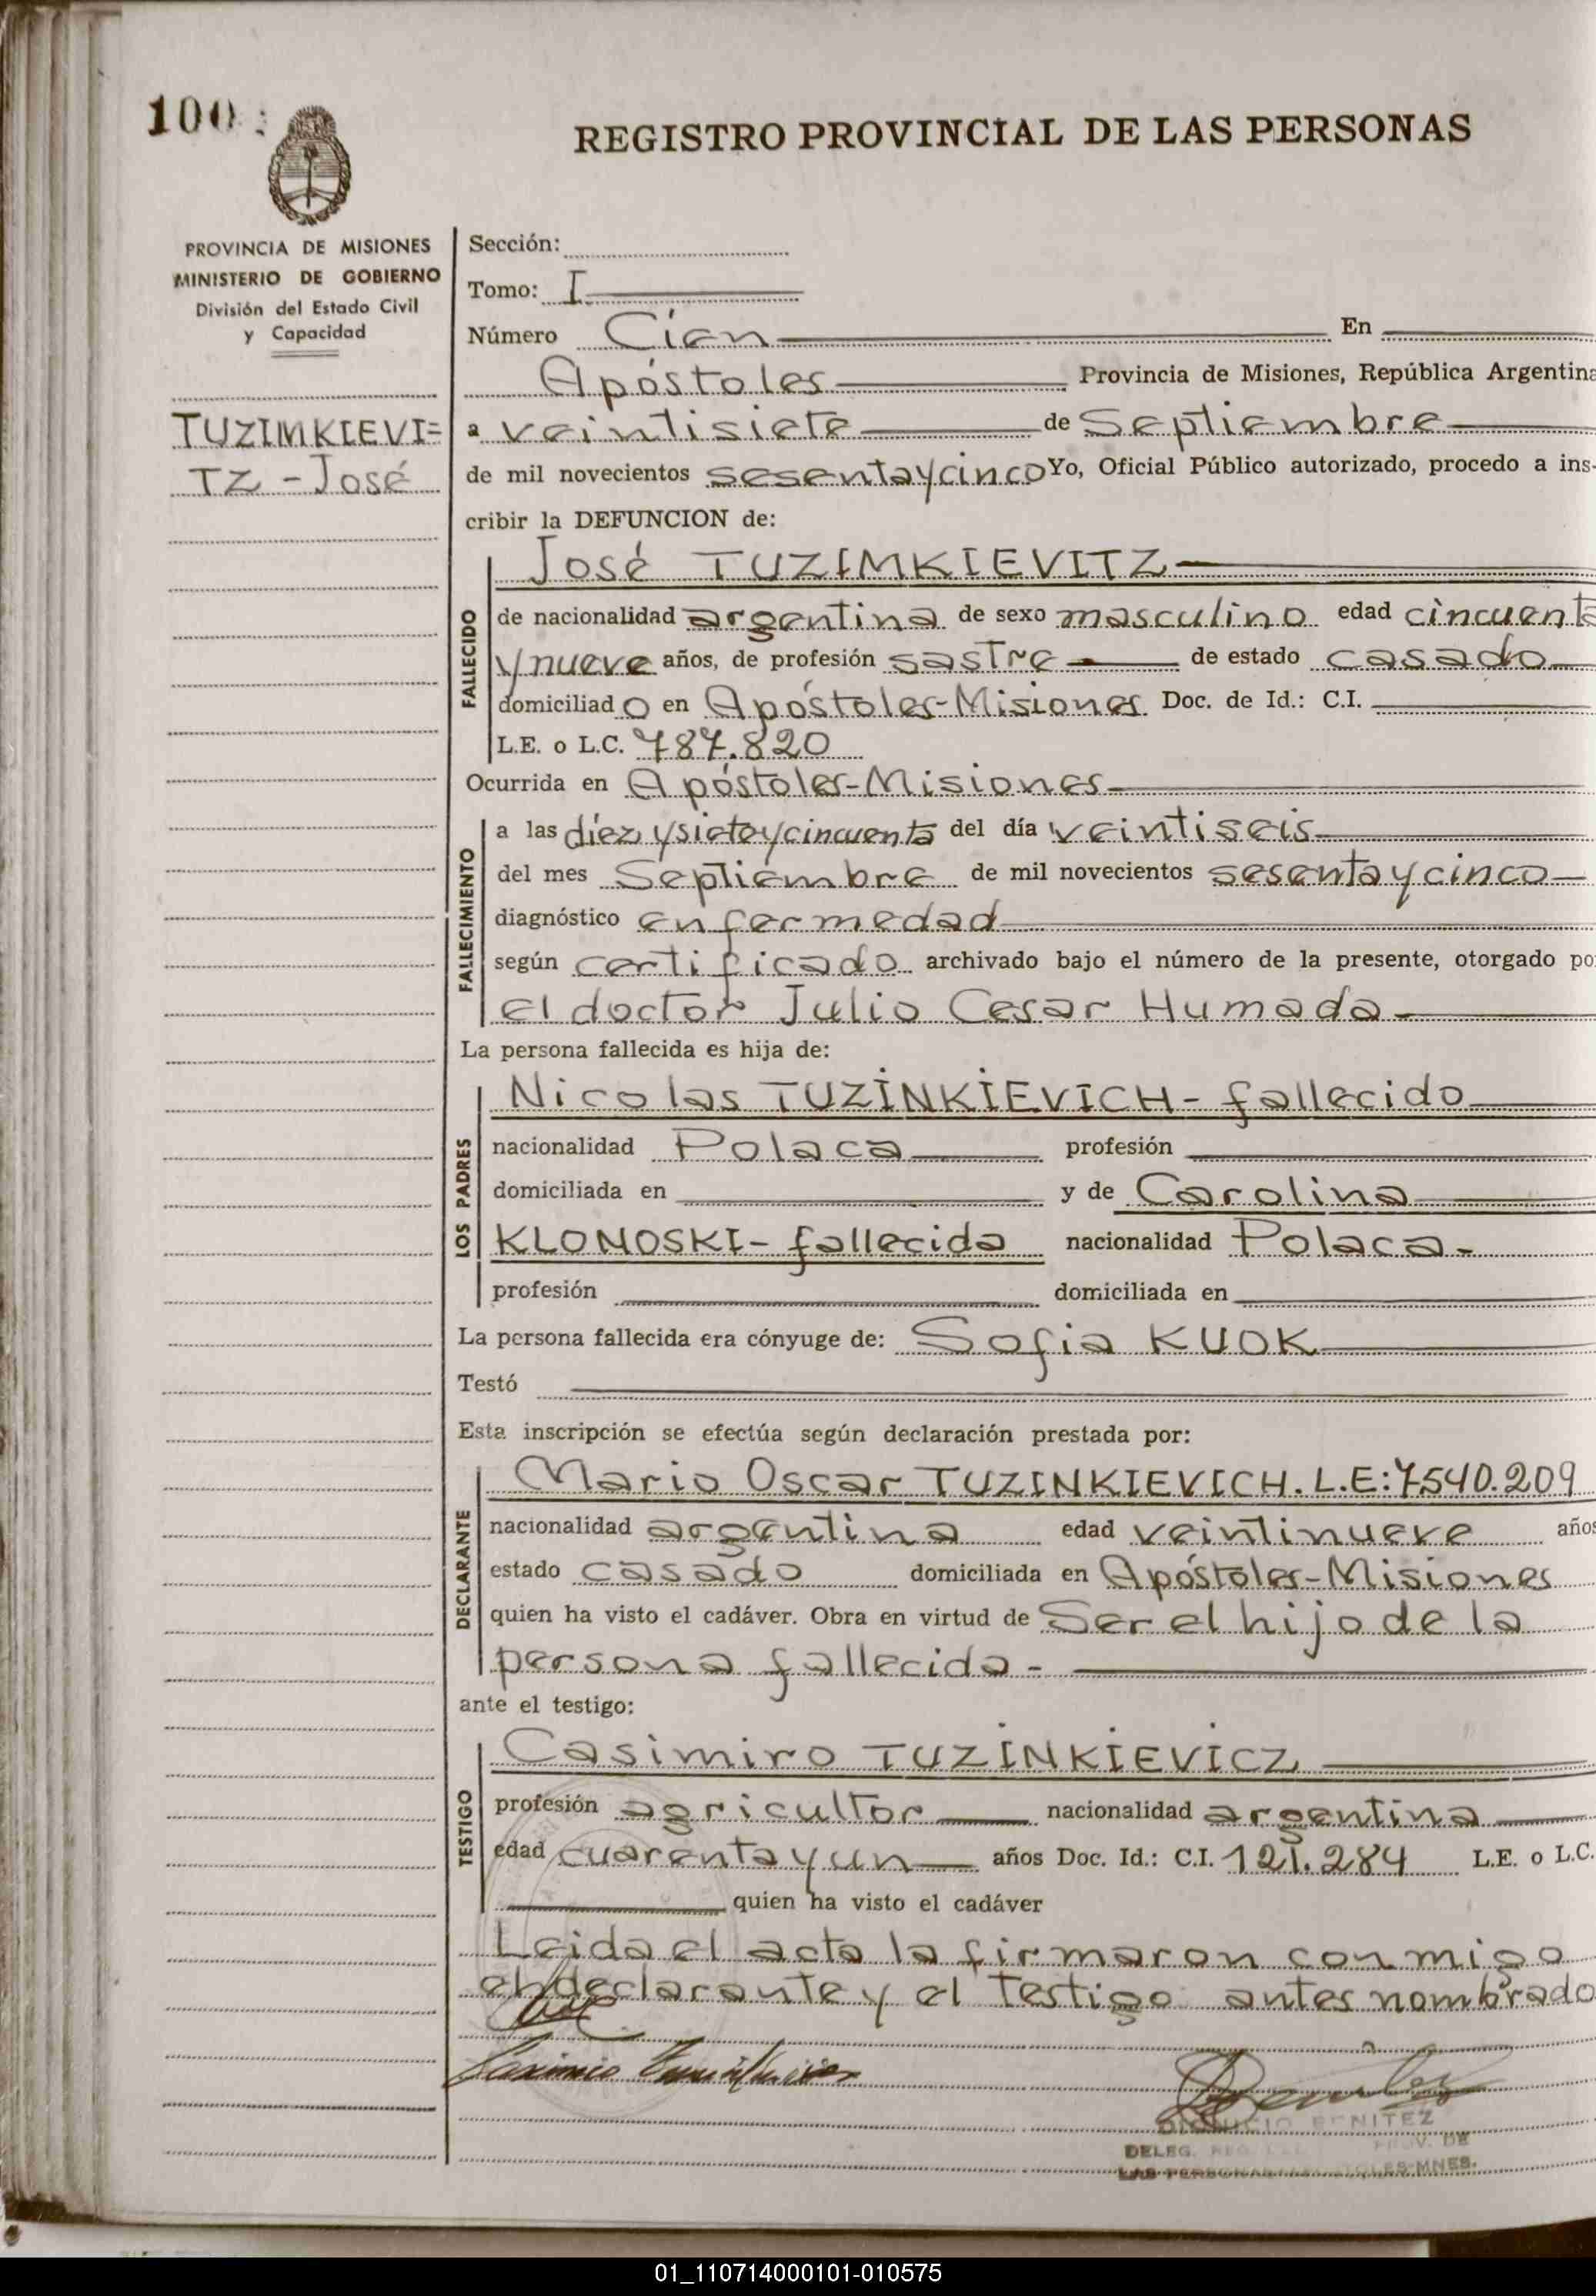 100
REGISTRO PROVINCIAL DE LAS PERSONAS
PROVINCIA DE MISIONES
MINISTERIO DE GOBIERNO
División del Estado Civil
y Capacidad
TUZIMKIEVI=
TZ - José
Sección:
Tomo: I
Número Cien En
Apóstoles Provincia de Misiones, República Argentina
a veintisiete de Septiembre
de mil novecientos sesentaycinco Yo, Oficial Público autorizado, procedo a ins-
cribir la DEFUNCION de:
FALLECIDO
José TUZIMKIEVITZ
de nacionalidad argentina de sexo masculino edad cincuenta
ynueve años, de profesión sastre de estado casado
domiciliado en Apóstoles-Misiones Doc. de Id.: C.I.
L.E. o L.C. 787.820
Ocurrida en Apóstoles-Misiones
FALLECIMIENTO
a las diez ysieteycincuenta del día veintiseis
del mes Septiembre de mil novecientos sesentaycinco
diagnóstico enfermedad
según certificado archivado bajo el número de la presente, otorgado por
el doctor Julio Cesar Humada
La persona fallecida es hija de:
LOS PADRES
Nicolas TUZINKIEVICH - fallecido
nacionalidad Polaca profesión
domiciliada en y de Carolina
KLONOSKI - fallecida nacionalidad Polaca -
profesión domiciliada en
La persona fallecida era cónyuge de: Sofia KUOK
Testó
Esta inscripción se efectúa según declaración prestada por:
DECLARANTE
Mario Oscar TUZINKIEVICH. L.E: 7540.209
nacionalidad argentina edad veintinueve años
estado casado domiciliada en Apóstoles-Misiones
quien ha visto el cadáver. Obra en virtud de Ser el hijo de la
persona fallecida -
ante el testigo:
TESTIGO
Casimiro TUZINKIEVICZ
profesión agricultor nacionalidad argentina
edad cuarenta y un años Doc. Id.: C.I. 121.284 L.E. o L.C.
quien ha visto el cadáver
Leida el acta la firmaron con migo
el declarante y el testigo antes nombrado
BENITEZ
DELEG. PROV. DE
LAS PERSONAS MNES.
01_110714000101-010575